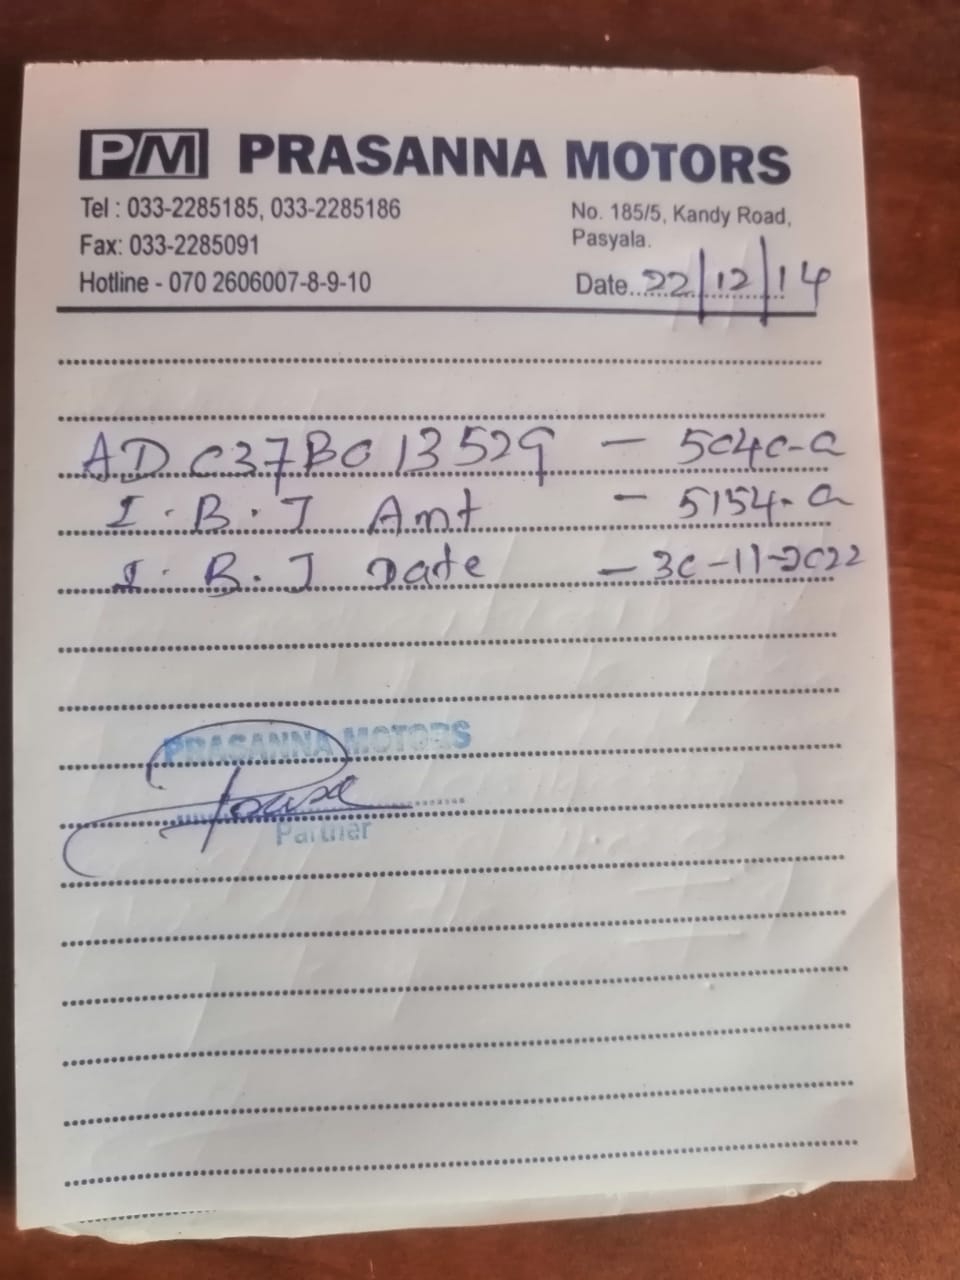 PM PRASANNA MOTORS
Tel : 033-2285185, 033-2285186
No. 185/5, Kandy Road,
Fax: 033-2285091
Pasyala.
Hotline - 070 2606007-8-9-10
Date..22/12/14
AD 037B013529 - 5040-0
I.B.J Amt - 5154-0
I.B.J Date - 30-11-2022
PRASANNA MOTORS
Partner